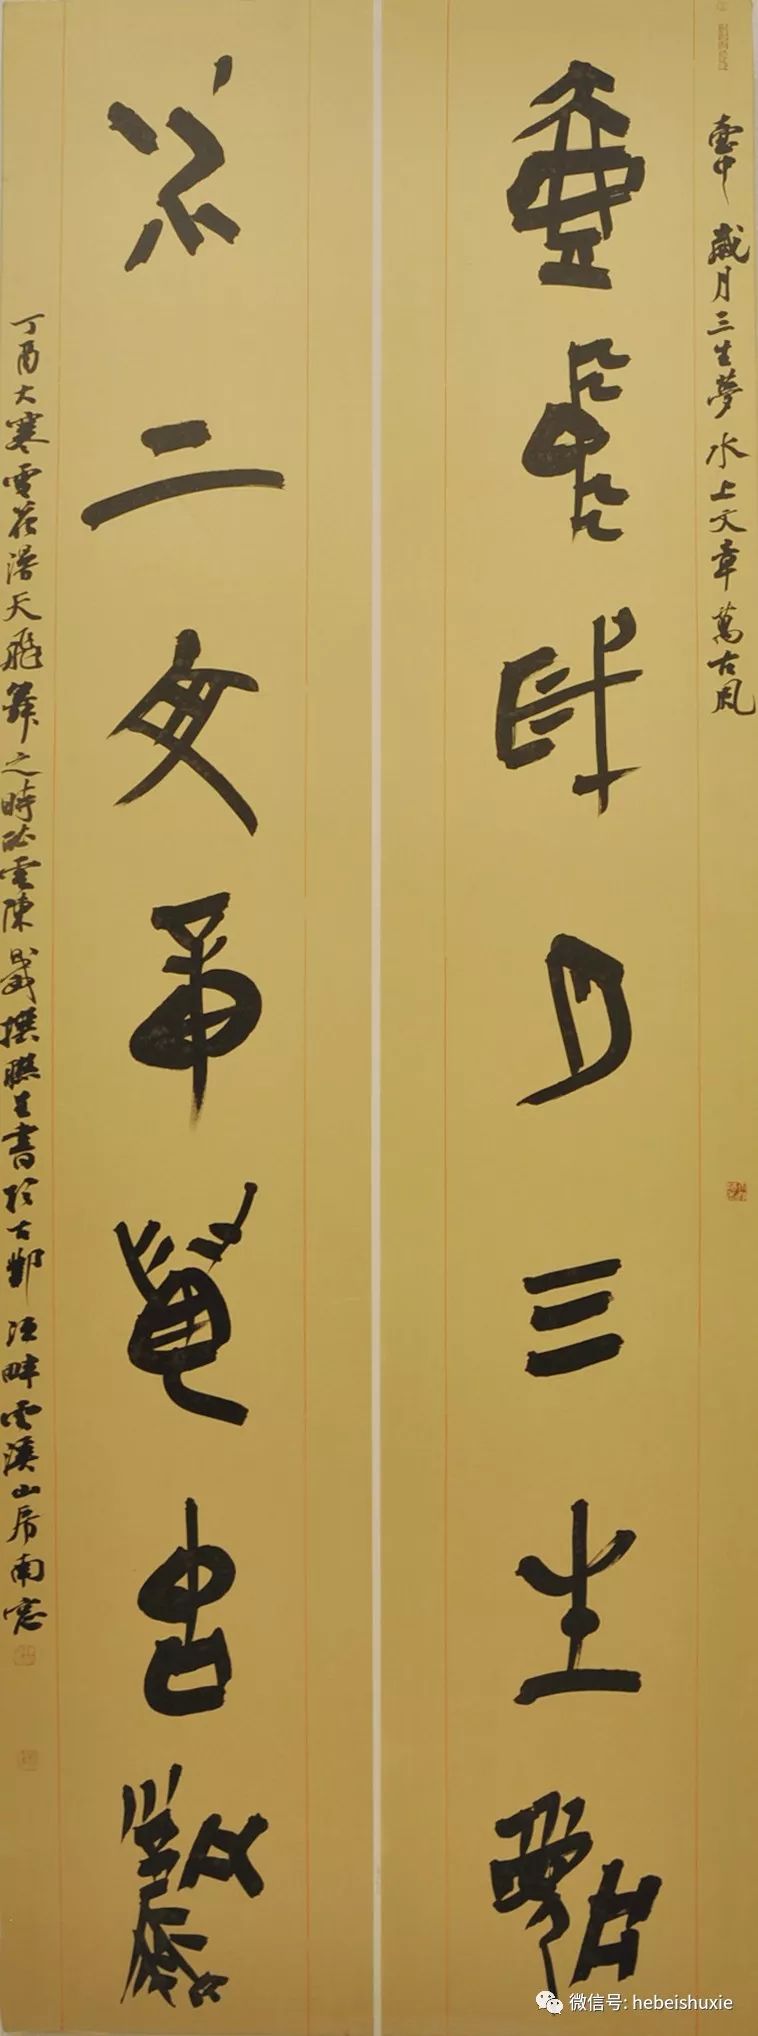 壶中岁月三生梦
壺中 歲月三生夢 水上文章萬古風
水上文章萬古風
丁酉大寒雪花漫天飛舞之時 陳 撰聯並書於古鄴 畔雲溪山房南窓
微信号: hebeishuxie